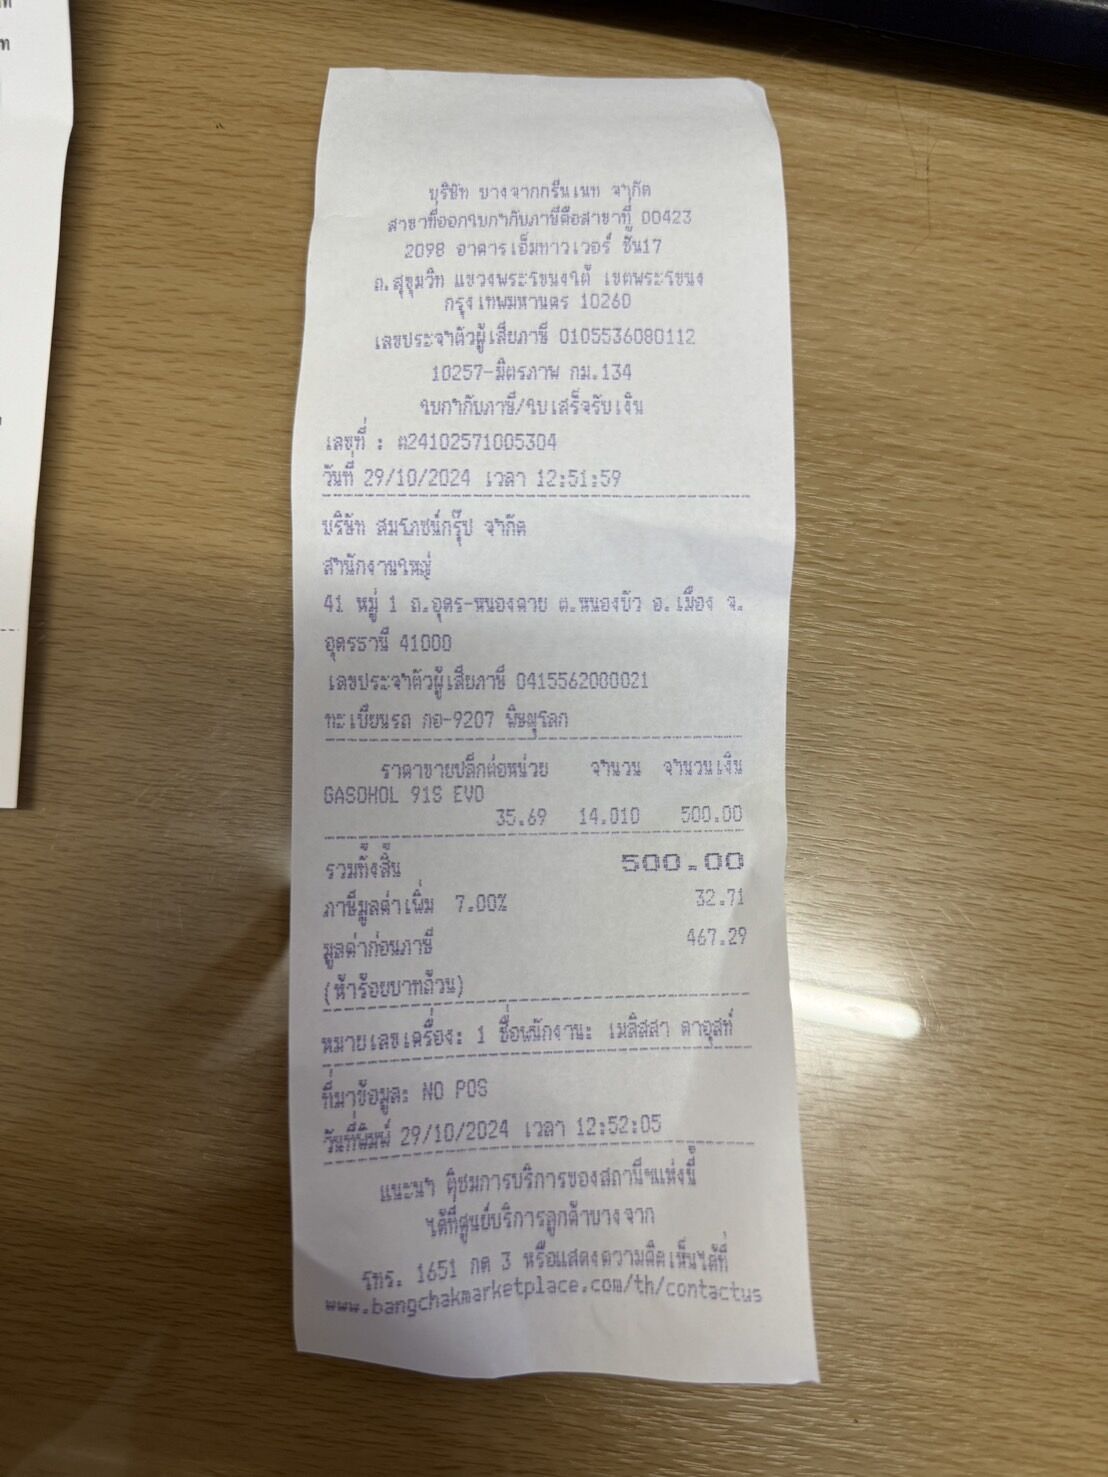 บริษัท บางจากกรีนเนท จำกัด
สาขาที่ออกใบกำกับภาษีคือสาขาที่ 00423
2098 อาคารเอ็มทาวเวอร์ ชั้น17
ถ.สุขุมวิท แขวงพระโขนงใต้ เขตพระโขนง
กรุงเทพมหานคร 10260
เลขประจำตัวผู้เสียภาษี 0105536080112
10257-มิตรภาพ กม.134
ใบกำกับภาษี/ใบเสร็จรับเงิน
เลขที่ : ต24102571005304
วันที่ 29/10/2024 เวลา 12:51:59
บริษัท สมโภชน์กรุ๊ป จำกัด
สำนักงานใหญ่
41 หมู่ 1 ถ.อุดร-หนองคาย ต.หนองบัว อ.เมือง จ.
อุดรธานี 41000
เลขประจำตัวผู้เสียภาษี 0415562000021
ทะเบียนรถ กอ-9207 พิษณุโลก
ราคาขายปลีกต่อหน่วย จำนวน จำนวนเงิน
GASOHOL 91S EVO
35.69 14.010 500.00
รวมทั้งสิ้น 500.00
ภาษีมูลค่าเพิ่ม 7.00% 32.71
มูลค่าก่อนภาษี 467.29
(ห้าร้อยบาทถ้วน)
หมายเลขเครื่อง: 1 ชื่อพนักงาน: เมลิสสา ดาอุสท์
ที่มาข้อมูล: NO POS
วันที่พิมพ์ 29/10/2024 เวลา 12:52:05
แนะนำ ติชมการบริการของสถานีฯแห่งนี้
ได้ที่ศูนย์บริการลูกค้าบางจาก
โทร. 1651 กด 3 หรือแสดงความคิดเห็นได้ที่
www.bangchakmarketplace.com/th/contactus